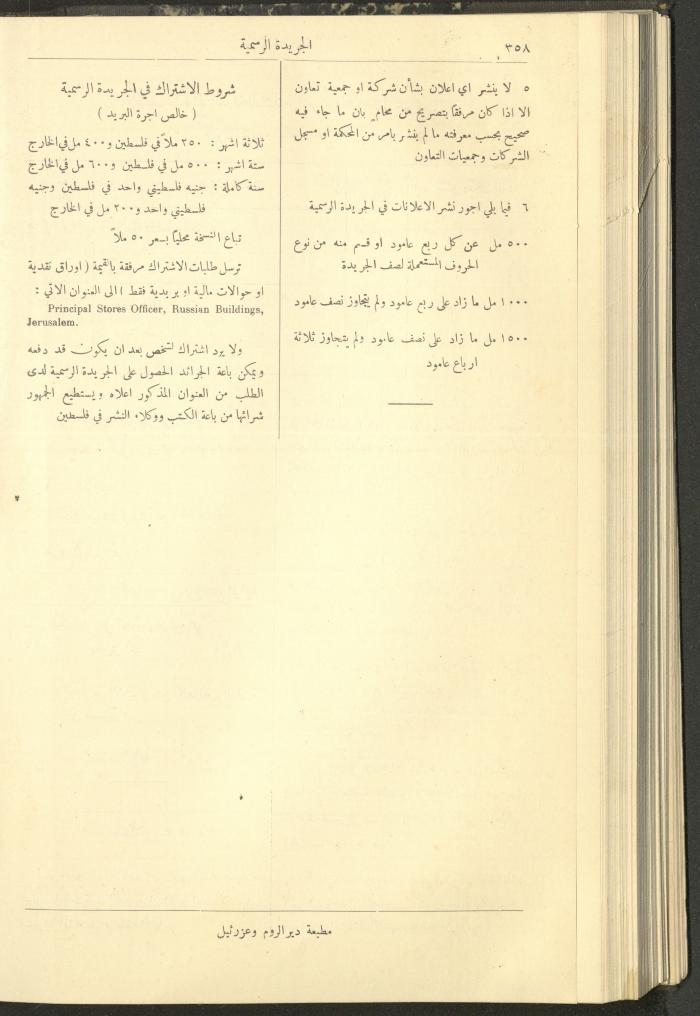 ٣٥٨
الجريدة الرسمية
٥ لا ينشر اي اعلان بشأن شركة او جمعية تعاون
الا اذا كان مرفقا بتصريح من محام بان ما جاء فيه
صحيح بحسب معرفته ما لم ينشر بامر من المحكمة او مسجل
الشركات وجمعيات التعاون
٦ فيما يلي اجور نشر الاعلانات في الجريدة الرسمية
٥٠٠ مل عن كل ربع عامود او قسم منه من نوع
الحروف المستعملة لصف الجريدة
١٠٠٠ مل ما زاد على ربع عامود ولم يتجاوز نصف عامود
١٥٠٠ مل ما زاد على نصف عامود ولم يتجاوز ثلاثة
ارباع عامود
شروط الاشتراك في الجريدة الرسمية
( خالص اجرة البريد )
ثلاثة اشهر : ٢٥٠ ملاً في فلسطين و ٤٠٠ مل في الخارج
ستة اشهر : ٥٠٠ مل في فلسطين و ٦٠٠ مل في الخارج
سنة كاملة : جنيه فلسطيني واحد في فلسطين وجنيه
فلسطيني واحد و ٢٠٠ مل في الخارج
تباع النسخة محلياً بسعر ٥٠ ملاً
ترسل طلبات الاشتراك مرفقة بالقيمة ( اوراق نقدية
او حوالات مالية او بريدية فقط ) الى العنوان الاتي :
Principal Stores Officer, Russian Buildings,
Jerusalem.
ولا يرد اشتراك لشخص بعد ان يكون قد دفعه
ويمكن باعة الجرائد الحصول على الجريدة الرسمية لدى
الطلب من العنوان المذكور اعلاه ويستطيع الجمهور
شرائها من باعة الكتب ووكلاء النشر في فلسطين
مطبعة دير الروم وعزرئيل